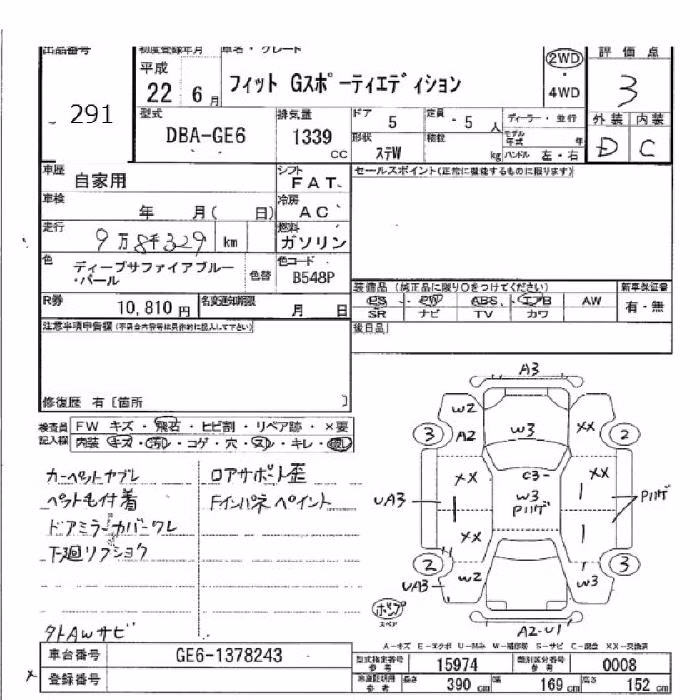 出品番号 初度登録年月 車名・グレード 2WD 評価点
291 平成 22 6月 フィット Gスポーティエディション ・ 4WD 3
型式 排気量 ドア 5 定員 ・5人 ディーラー・並行 外装 内装
DBA-GE6 1339 cc 形状 ステW 積載 kg モデル年式 年 ハンドル 左・右 D C
車歴 自家用 シフト FAT セールスポイント(正常に機能するものに限ります)
車検 年 月( 日) 冷房 AC
走行 9万8千329 km 燃料 ガソリン
色 ディープサファイアブルー・パール 色替 色コード B548P
装備品 (純正品に限り○をつけてください) 新車保証書
PS ・ PW ・ ABS ・ エアB AW 有・無
SR ナビ TV カワ
R券 10,810円 名変通知期限 月 日
注意事項申告欄 (不具合内容等は具体的に記入して下さい) 後日品
修復歴 有 [箇所 ]
検査員記入欄 FW キズ・飛石・ヒビ割・リペア跡・×要
内装 キズ・汚れ・コゲ・穴・スレ・キレ・
カーペットヤブレ ロアサポート歪
ペット毛付着 Fインパネ ペイント
ドアミラーカバーワレ
下廻リフショク
外AWサビ
A3
W2 W3 XX
3 A2 2
XX C3- XX
UA3 W3 Pリンゲ Pリンゲ
XX
2 3
UA3 W2 W3
ポンプ
スペア
A2-U1
A-キズ E-エクボ U-凹み W-補修跡 S-サビ C-腐食 XX-交換済
車台番号 GE6-1378243 型式指定番号 参考 15974 類別区分番号 参考 0008
登録番号 車庫証明用 参考 長さ 390cm 幅 169cm 高さ 152cm